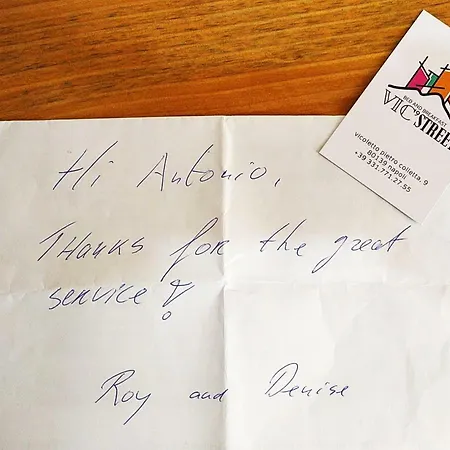 BED AND BREAKFAST
VIC STREET
vicoletto pietro colletta, 9
80139 napoli
+39 331.771.27.55
Hi Antonio,
THanks for the great
service!
Roy and Denise